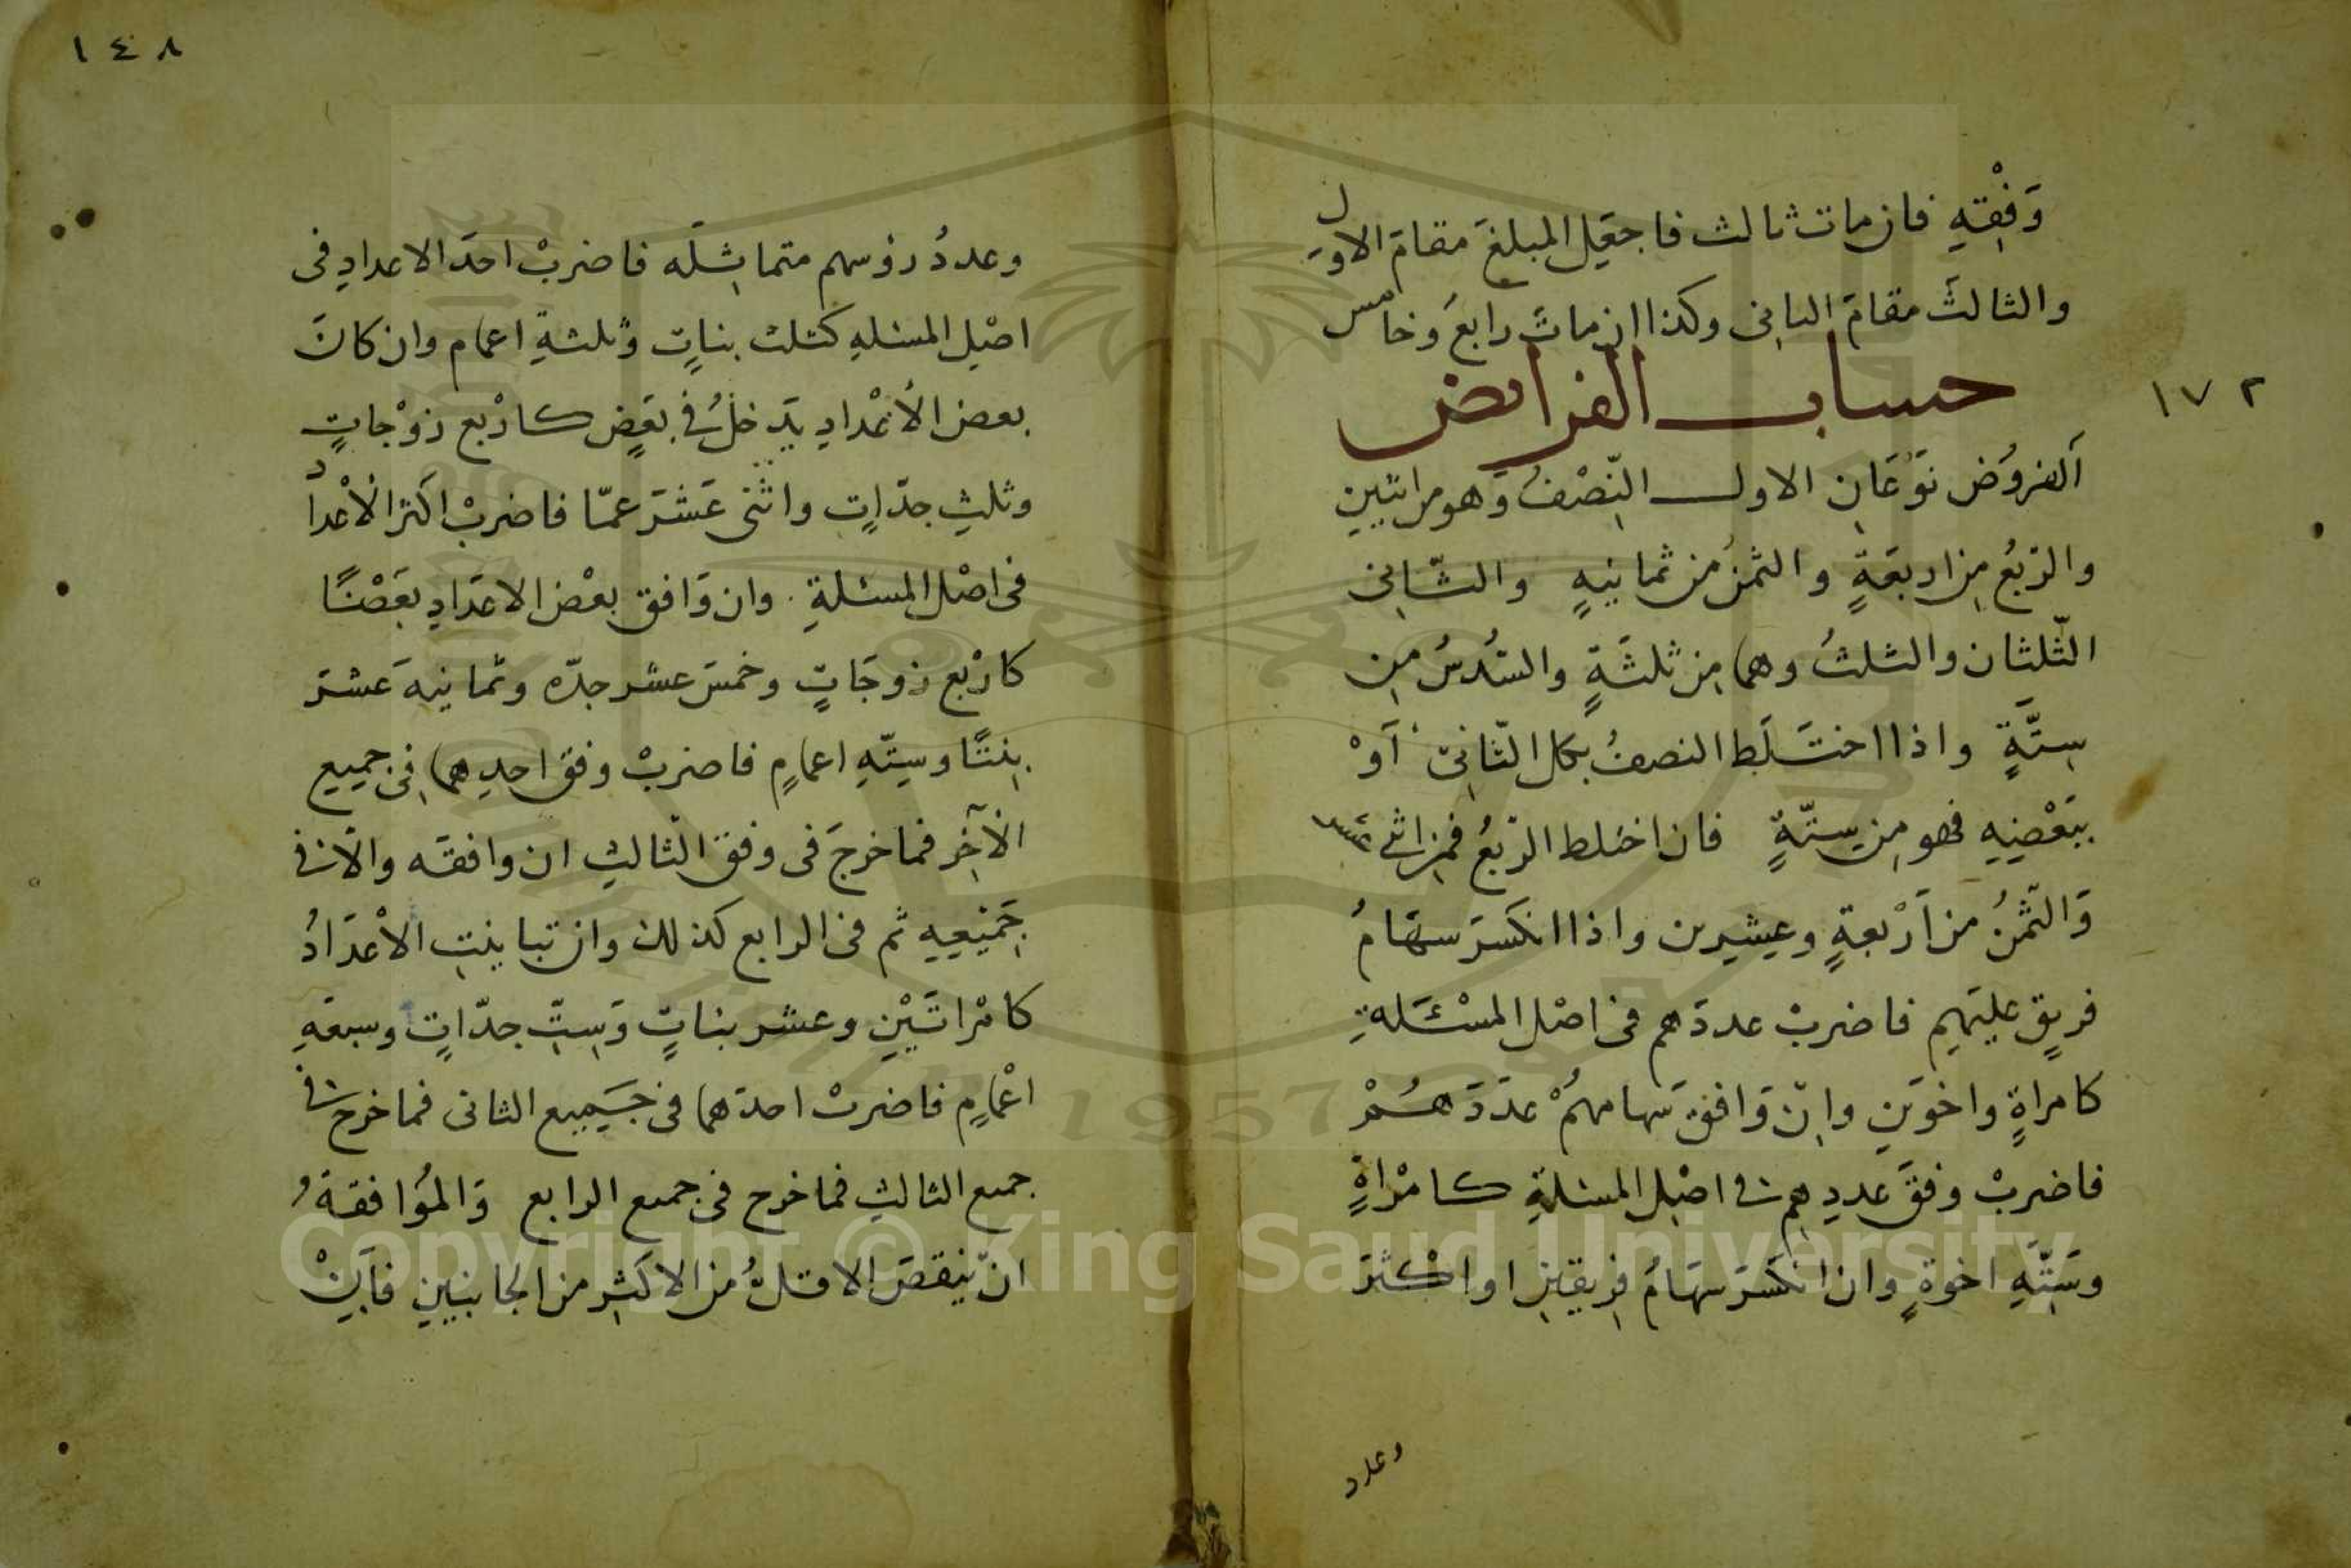 وَفْقِهِ فان مات ثالث فاجعَلِ المبلغَ مقامَ الاول
والثالثَ مقامَ الثانى وكذا ان ماتَ رابعَ وخامس
حساب الفرايض
١٧٢
اَلفروُض نَوْعَانِ الاول النِّصْفُ وَهو من اثنين
والرّبعُ مِن اربعَةٍ والثمنُ من ثمانيهٍ والثّانِى
الثّلثان والثلثُ وهما مِن ثلثَةٍ والسُّدسُ مِن
سِتَّةٍ واذا اختَلَط النصفُ بكل الثّانِى اَوْ
بِبَعْضِهِ فهو مِن سِتّةٍ فان اختلط الرّبعُ فمِن اثنى عشر
وَالثّمنُ من اَرْبعةٍ وعِشرين واذا انكَسَرَ سهَامُ
فريقٍ عليَهِم فاضربْ عددَهم فى اصْل المسْئَلةِ
كامراةٍ واخوَين وانْ وَافق سَهامهُمْ عدَدَهُمْ
فاضربْ وفقَ عددِهم فى اصْلِ المسئلةِ كامْراةٍ
وسَتِّةِ اخوةٍ وان انكَسَرَ سهَامُ فِريقينِ او اكْثرَ
وعدد
١٤٨
وعددُ رؤسهم متماثِلَه فاضربْ احَدَ الاعدادِ فى
اصْلِ المسئلهِ كثلث بناتٍ وثلثةِ اعمام وان كانَ
بعض الأعْدادِ يتَدخلُ فى بعَضٍ كارْبع زوْجاتٍ
وثلثِ جدّاتٍ واثنى عَشَرَ عمّا فاضربْ اكَثر الْأعْداد
فى اصْل المسئلةِ وان وَافق بعْض الاعَدادِ بعَضًا
كارْبع زوجَاتٍ وخمسَ عشر جدّه وثمانيهَ عَشرَ
بِنتًا وسِتّهِ اعمامٍ فاضربْ وفق احدِهما فِى جميعِ
الآخِر فماخرجَ فى وفق الثالثِ ان وافقَه والّا فى
جَمْيعِهِ ثم فى الرابع كذلك وان تباينتِ الاْعدَادُ
كامْراتَيْنِ وعشر بناتٍ وَسِتِّ جدّاتٍ وسبعةِ
اعْمامٍ فاضربْ احدَهما فى جَميع الثانى فماخرج فى
جميع الثالثِ فماخرج فى جميع الرابع وَالموُافقةُ
انْ ينقصَ الاقلُّ من الاكثرِ من الجانبينِ فاَيْنْ